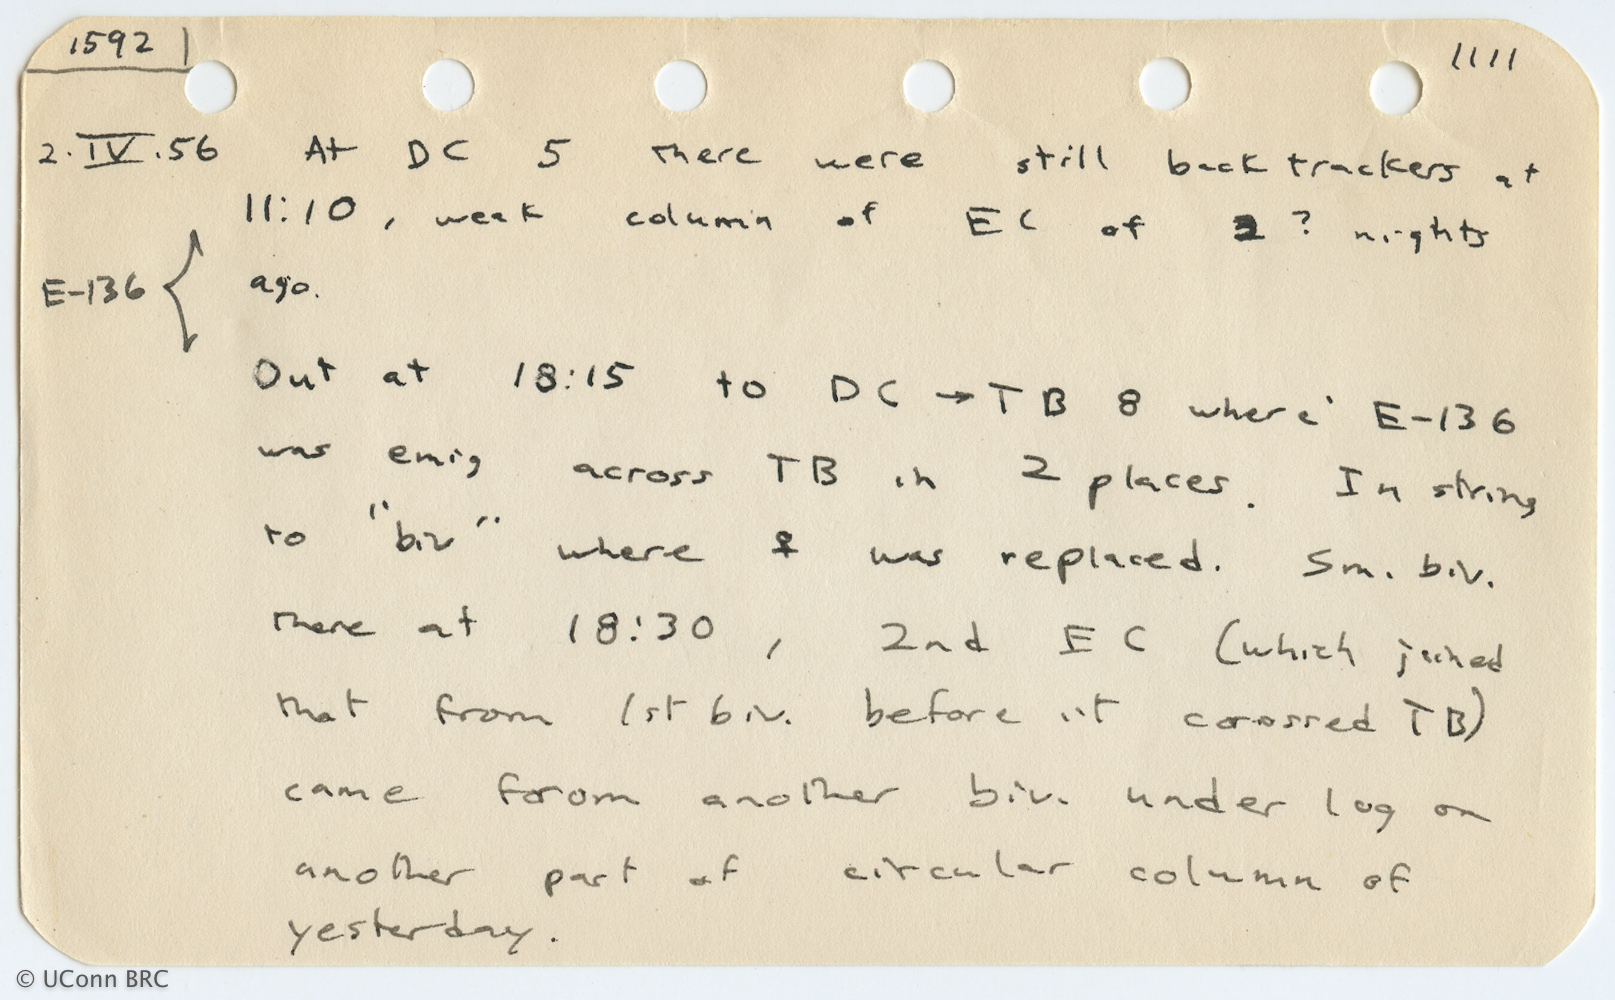 1592
1111
2.IV.56 At DC 5 there were still backtrackers at
11:10, weak column of EC of 2 ? nights
E-136 ago.
Out at 18:15 to DC → TB 8 where E-136
was emig across TB in 2 places. In string
to "biv" where ♀ was replaced. Sm. biv.
there at 18:30, 2nd EC (which joined
that from 1st biv. before it corossed TB)
came forom another biv. under log on
another part of circular column of
yesterday.
© UConn BRC